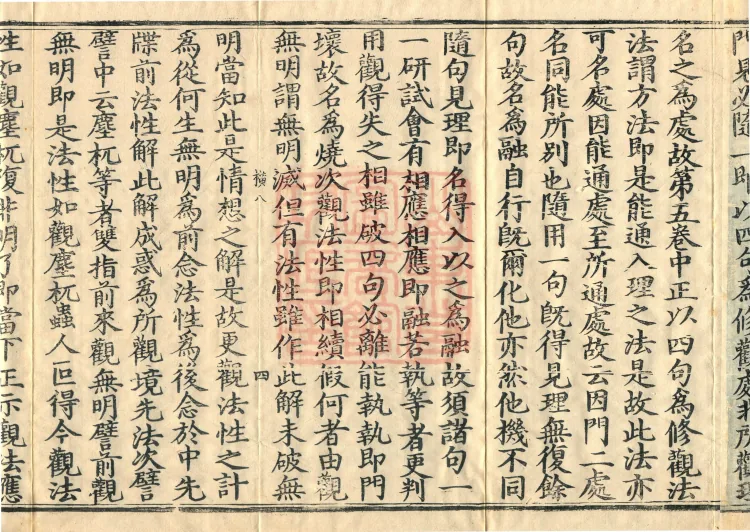 門界必隨一即以四句為修觀處於所觀理
名之為處故第五卷中正以四句為修觀法
法謂方法即是能通入理之法是故此法亦
可名處因能通處至所通處故云因門二處
名同能所別也隨用一句既得見理無復餘
句故名為融自行既爾化他亦然他機不同
隨句見理即名得入以之為融故須諸句一
一研試會有相應相應即融若執等者更判
用觀得失之相雖破四句必離能執執即門
壞故名為燒次觀法性即相續假何者由觀
無明謂無明滅但有法性雖作此解未破無
橫八
四
明當知此是情想之解是故更觀法性之計
為從何生無明為前念法性為後念於中先
牒前法性解此解成惑為所觀境先法次譬
譬中云塵杌等者雙指前來觀無明譬前觀
無明即是法性如觀塵杌蟲人叵得今觀法
性如觀塵杌復非明了即當下正示觀法應